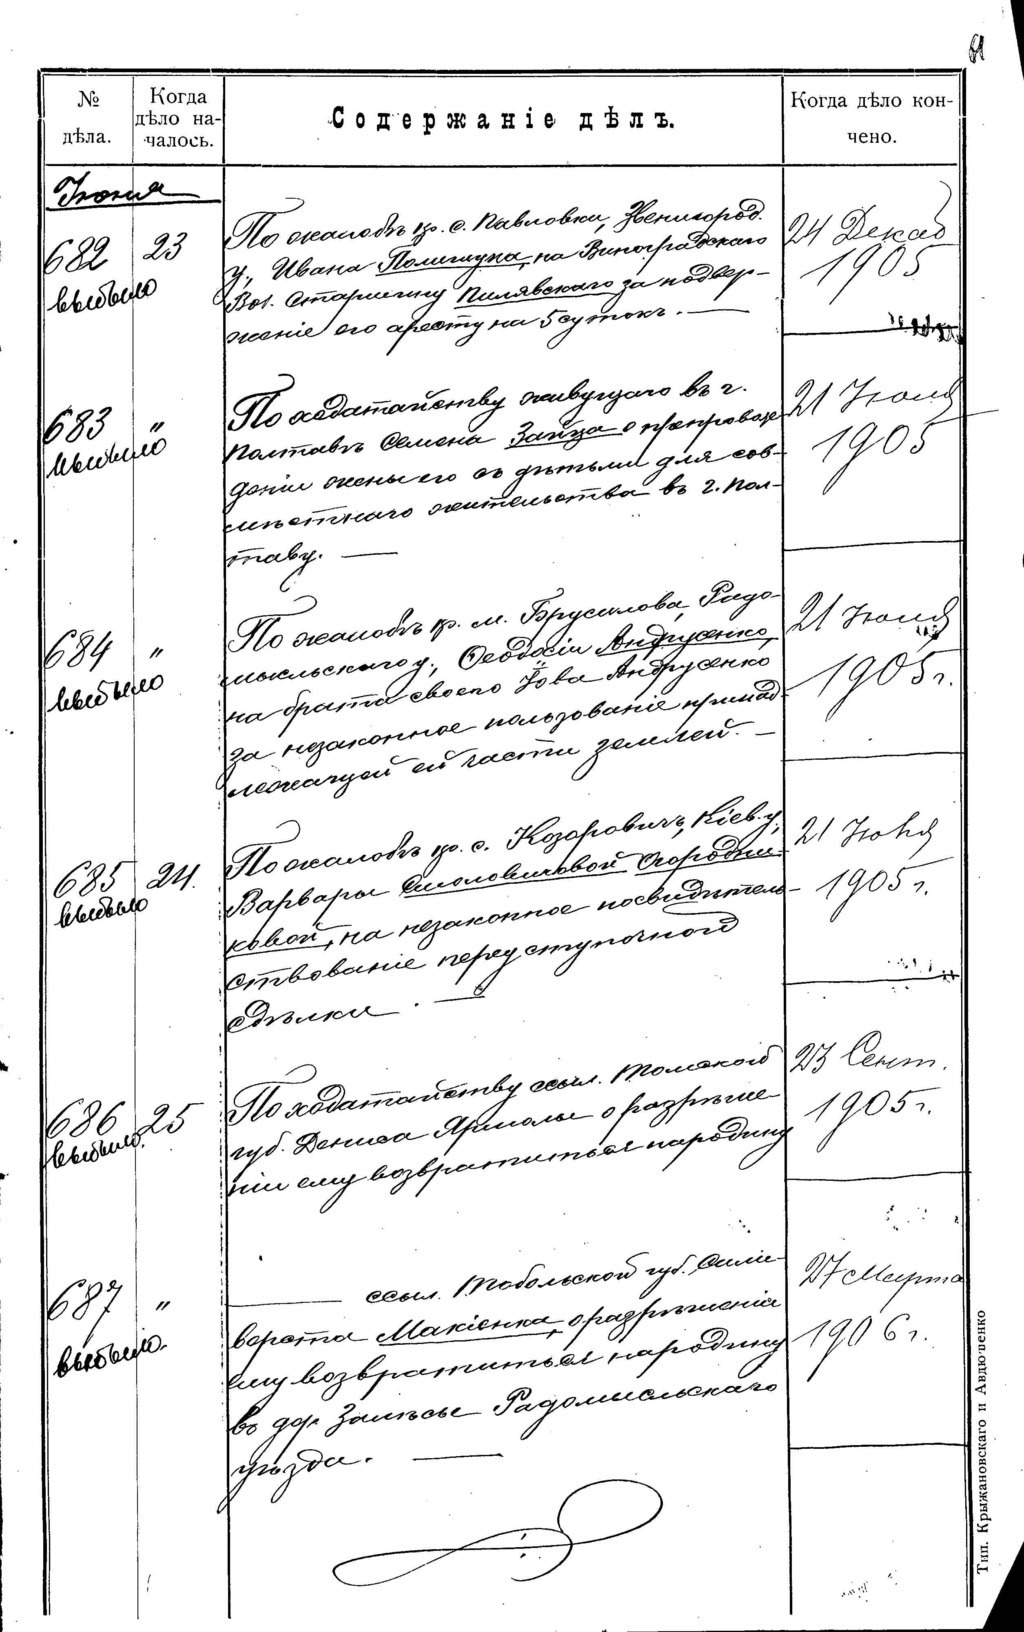 № дѣла.
Когда дѣло на-чалось.
Содержаніе дѣлъ.
Когда дѣло кон-чено.
Іюня
682
выбыло
23
По жалобѣ кр. с. Павловки, Звенигород.
у., Ивана Полищука, на Виноградскаго
Вол. Старшину Пилявскаго за подвер-
женіе его аресту на 5 сутокъ. —
24 Декаб
1905
683
выбыло
"
По ходатайству живущаго въ г.
Полтавѣ Семена Зайца о препровож
деніи жены его съ дѣтьми для сов-
мѣстнаго жительства въ г. Пол-
таву. —
21 Іюля
1905
684
выбыло
"
По жалобѣ кр. м. Брусилова, Радо-
мысльскаго у., Ѳеодосіи Андрусенко,
на брата своего Іова Андрусенко
за незаконное пользованіе принад-
лежащей ей части землей. —
21 Іюля
1905 г.
685
выбыло
24.
По жалобѣ кр. с. Козаровичъ, Кіев. у.,
Варвары Смоловиковой Огородни-
ковой, на незаконное посвидѣтель-
ствованіе переуступочной
сдѣлки. —
21 Іюля
1905 г.
686
выбыло.
25
По ходатайству ссыл. Томской
губ. Дениса Ярмолы о разрѣше
ніи ему возвратиться на родину
23 Сент.
1905 г.
687
выбыло.
"
— ссыл. Тобольской губ. Сили-
верста Макіенка, о разрѣшеніи
ему возвратиться на родину
въ дер. Залѣсье Радомысльскаго
уѣзда. —
27 Марта
1906 г.
Тип. Крыжановскаго и Авдюченко